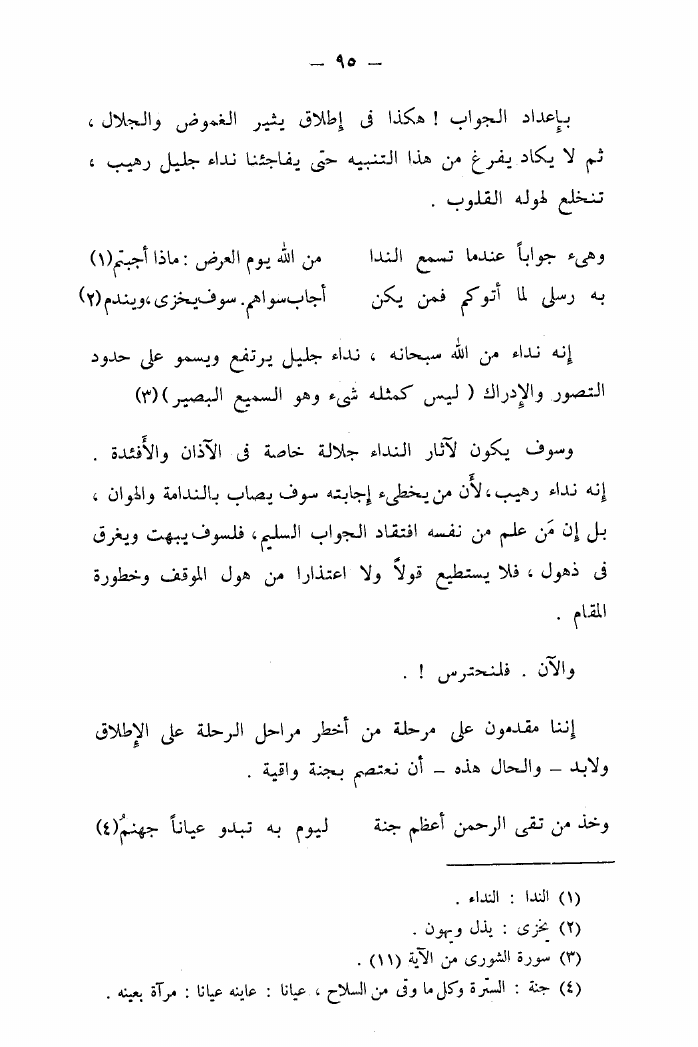 — ٩٥ —
بإعداد الجواب ! هكذا فى إطلاق يثير الغموض والجلال ،
ثم لا يكاد يفرغ من هذا التنبيه حتى يفاجئنا نداء جليل رهيب ،
تنخلع لهوله القلوب .
وهىء جواباً عندما تسمع الندا من الله يوم العرض : ماذا أجبتم(١)
به رسلى لما أتوكم فمن يكن أجاب سواهم. سوف يخزى،ويندم(٢)
إنه نداء من الله سبحانه ، نداء جليل يرتفع ويسمو على حدود
التصور والإدراك ( ليس كمثله شىء وهو السميع البصير )(٣)
وسوف يكون لآثار النداء جلالة خاصة فى الآذان والأفئدة .
إنه نداء رهيب، لأن من يخطىء إجابته سوف يصاب بالندامة والهوان ،
بل إن مَن علم من نفسه افتقاد الجواب السليم، فلسوف يبهت ويغرق
فى ذهول ، فلا يستطيع قولاً ولا اعتذارا من هول الموقف وخطورة
المقام .
والآن . فلنحترس ! .
إننا مقدمون على مرحلة من أخطر مراحل الرحلة على الإطلاق
ولابد – والحال هذه – أن نعتصم بجنة واقية .
وخذ من تقى الرحمن أعظم جنة ليوم به تبدو عياناً جهنمُ(٤)
(١) الندا : النداء .
(٢) يخزى : يذل ويهون .
(٣) سورة الشورى من الآية (١١) .
(٤) جنة : السترة وكل ما وقى من السلاح ، عيانا : عاينه عيانا : مرآة بعينه .